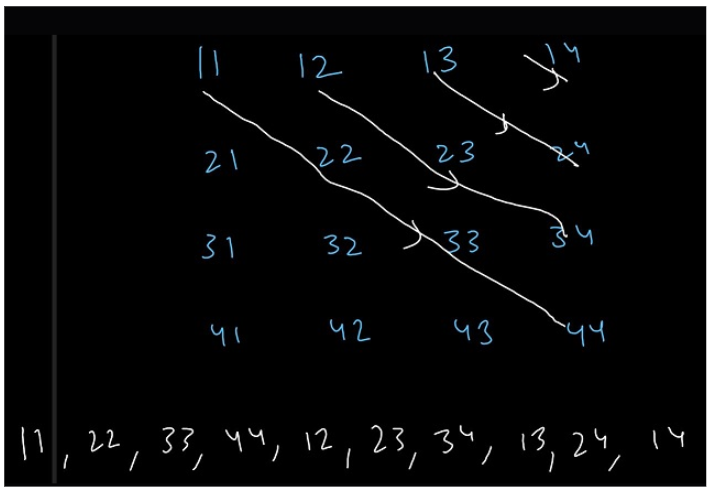 11 12 13 14
21 22 23 24
31 32 33 34
41 42 43 44
11, 22, 33, 44, 12, 23, 34, 13, 24, 14